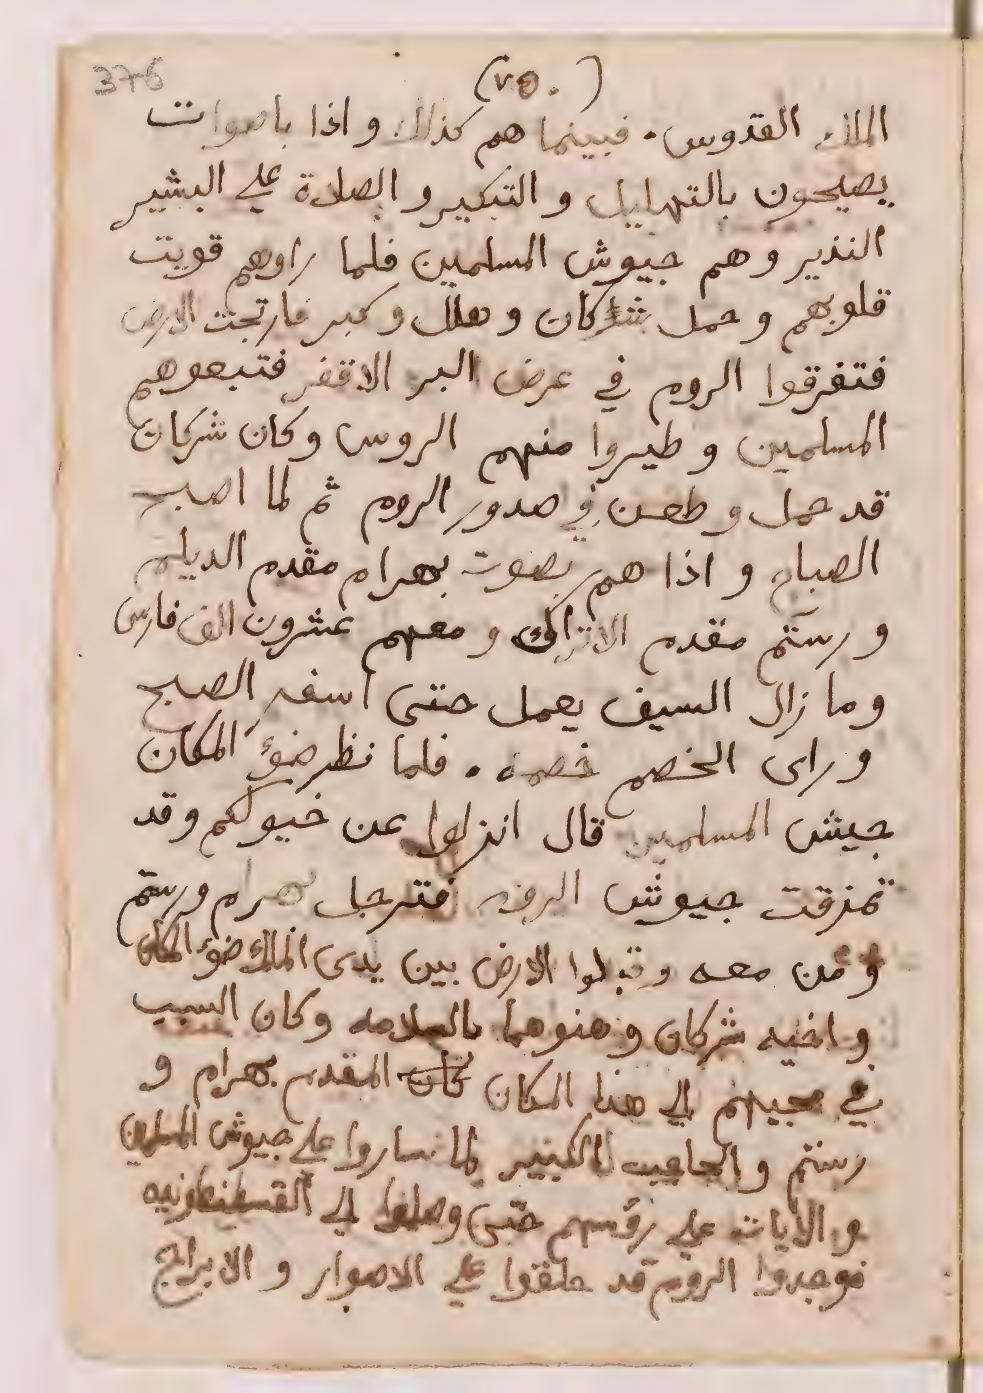 376
(٧٥٠)
الملك القدوس. فبينما هم كذالك واذا باصوات
يصيحون بالتهليل والتبكير والصلاة على البشير
النذير وهم جيوش المسلمين فلما راوهم قويت
قلوبهم وحمل شركان وهلل وكبر فارتجت الارض
فتفرقوا الروم في عرض البر الاقفر فتبعوهم
المسلمين وطيروا منهم الروس وكان شركان
قد حمل وطعن في صدور الروم ثم لما اصبح
الصباح واذا هم بصوت بهرام مقدم الديلم
ورستم مقدم الاتراك ومعهم عشرون الف فارس
وما زال السيف يعمل حتى اسفر الصبح
وراى الخصم خصمه. فلما نظر ضوء المكان
جيش المسلمين قال انزلوا عن خيولكم وقد
تمزقت جيوش الروم فترجل بهرام ورستم
ومن معه وقبلوا الارض بين يدى الملك ضوء المكان
واخيه شركان وهنوهما بالسلامه وكان السبب
في مجيهم الي هذا المكان كان المقدم بهرام و
رستم والحاجب الكبير لما ساروا على جيوش المسلمين
والايات على رؤسهم حتى وصلوا الي القسطنطونيه
فوجدوا الروم قد حلقوا على الاصوار والابراج